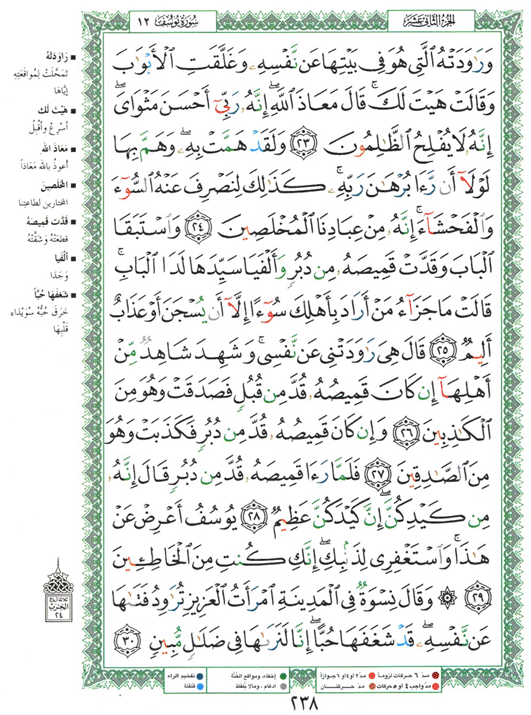 الجزء الثاني عشر
سورة يوسف ١٢
وَرَٰوَدَتْهُ الَّتِي هُوَ فِي بَيْتِهَا عَن نَّفْسِهِۦ وَغَلَّقَتِ الْأَبْوَٰبَ
وَقَالَتْ هَيْتَ لَكَ ۚ قَالَ مَعَاذَ اللَّهِ ۖ إِنَّهُۥ رَبِّيٓ أَحْسَنَ مَثْوَايَ ۖ
إِنَّهُۥ لَا يُفْلِحُ الظَّٰلِمُونَ ﴿٢٣﴾ وَلَقَدْ هَمَّتْ بِهِۦ ۖ وَهَمَّ بِهَا
لَوْلَآ أَن رَّءَا بُرْهَٰنَ رَبِّهِۦ ۚ كَذَٰلِكَ لِنَصْرِفَ عَنْهُ السُّوٓءَ
وَالْفَحْشَآءَ ۚ إِنَّهُۥ مِنْ عِبَادِنَا الْمُخْلَصِينَ ﴿٢٤﴾ وَاسْتَبَقَا
الْبَابَ وَقَدَّتْ قَمِيصَهُۥ مِن دُبُرٍ وَأَلْفَيَا سَيِّدَهَا لَدَا الْبَابِ ۚ
قَالَتْ مَا جَزَآءُ مَنْ أَرَادَ بِأَهْلِكَ سُوٓءًا إِلَّآ أَن يُسْجَنَ أَوْ عَذَابٌ
أَلِيمٌ ﴿٢٥﴾ قَالَ هِيَ رَٰوَدَتْنِي عَن نَّفْسِي ۚ وَشَهِدَ شَاهِدٌ مِّنْ
أَهْلِهَآ إِن كَانَ قَمِيصُهُۥ قُدَّ مِن قُبُلٍ فَصَدَقَتْ وَهُوَ مِنَ
الْكَٰذِبِينَ ﴿٢٦﴾ وَإِن كَانَ قَمِيصُهُۥ قُدَّ مِن دُبُرٍ فَكَذَبَتْ وَهُوَ
مِنَ الصَّٰدِقِينَ ﴿٢٧﴾ فَلَمَّا رَءَا قَمِيصَهُۥ قُدَّ مِن دُبُرٍ قَالَ إِنَّهُۥ
مِن كَيْدِكُنَّ ۖ إِنَّ كَيْدَكُنَّ عَظِيمٌ ﴿٢٨﴾ يُوسُفُ أَعْرِضْ عَنْ
هَٰذَا ۚ وَاسْتَغْفِرِي لِذَنۢبِكِ ۖ إِنَّكِ كُنتِ مِنَ الْخَاطِـِٔينَ
﴿٢٩﴾ ۞ وَقَالَ نِسْوَةٌ فِي الْمَدِينَةِ امْرَأَتُ الْعَزِيزِ تُرَٰوِدُ فَتَىٰهَا
عَن نَّفْسِهِۦ ۖ قَدْ شَغَفَهَا حُبًّا ۖ إِنَّا لَنَرَىٰهَا فِي ضَلَٰلٍ مُّبِينٍ ﴿٣٠﴾
رَاوَدَتْهُ
تَمَحَّلَتْ لِمُوَاقَعَتِهِ
إِيَّاهَا
هَيْتَ لَكَ
أَسْرِعْ وَأَقْبِلْ
مَعَاذَ الله
أَعُوذُ بِالله مَعَاذًا
المُخْلَصِينَ
المختارين لطاعتنا
قَدَّتْ قَمِيصَهُ
قَطَعَتْهُ وَشَقَّتْهُ
أَلْفَيَا
وَجَدَا
شَغَفَهَا حُبًّا
خَرَقَ حُبُّهُ سُوَيْدَاءَ
قَلْبِهَا
الحزب
٢٤
مدّ ٦ حركات لزوماً
مدّ ٢ أو ٤ أو ٦ جوازاً
إخفاء، ومواقع الغُنّة
تفخيم الراء
مدّ واجب ٤ أو ٥ حركات
مدّ حركتان
إدغام، ومالا يلفظ
قلقلة
٢٣٨